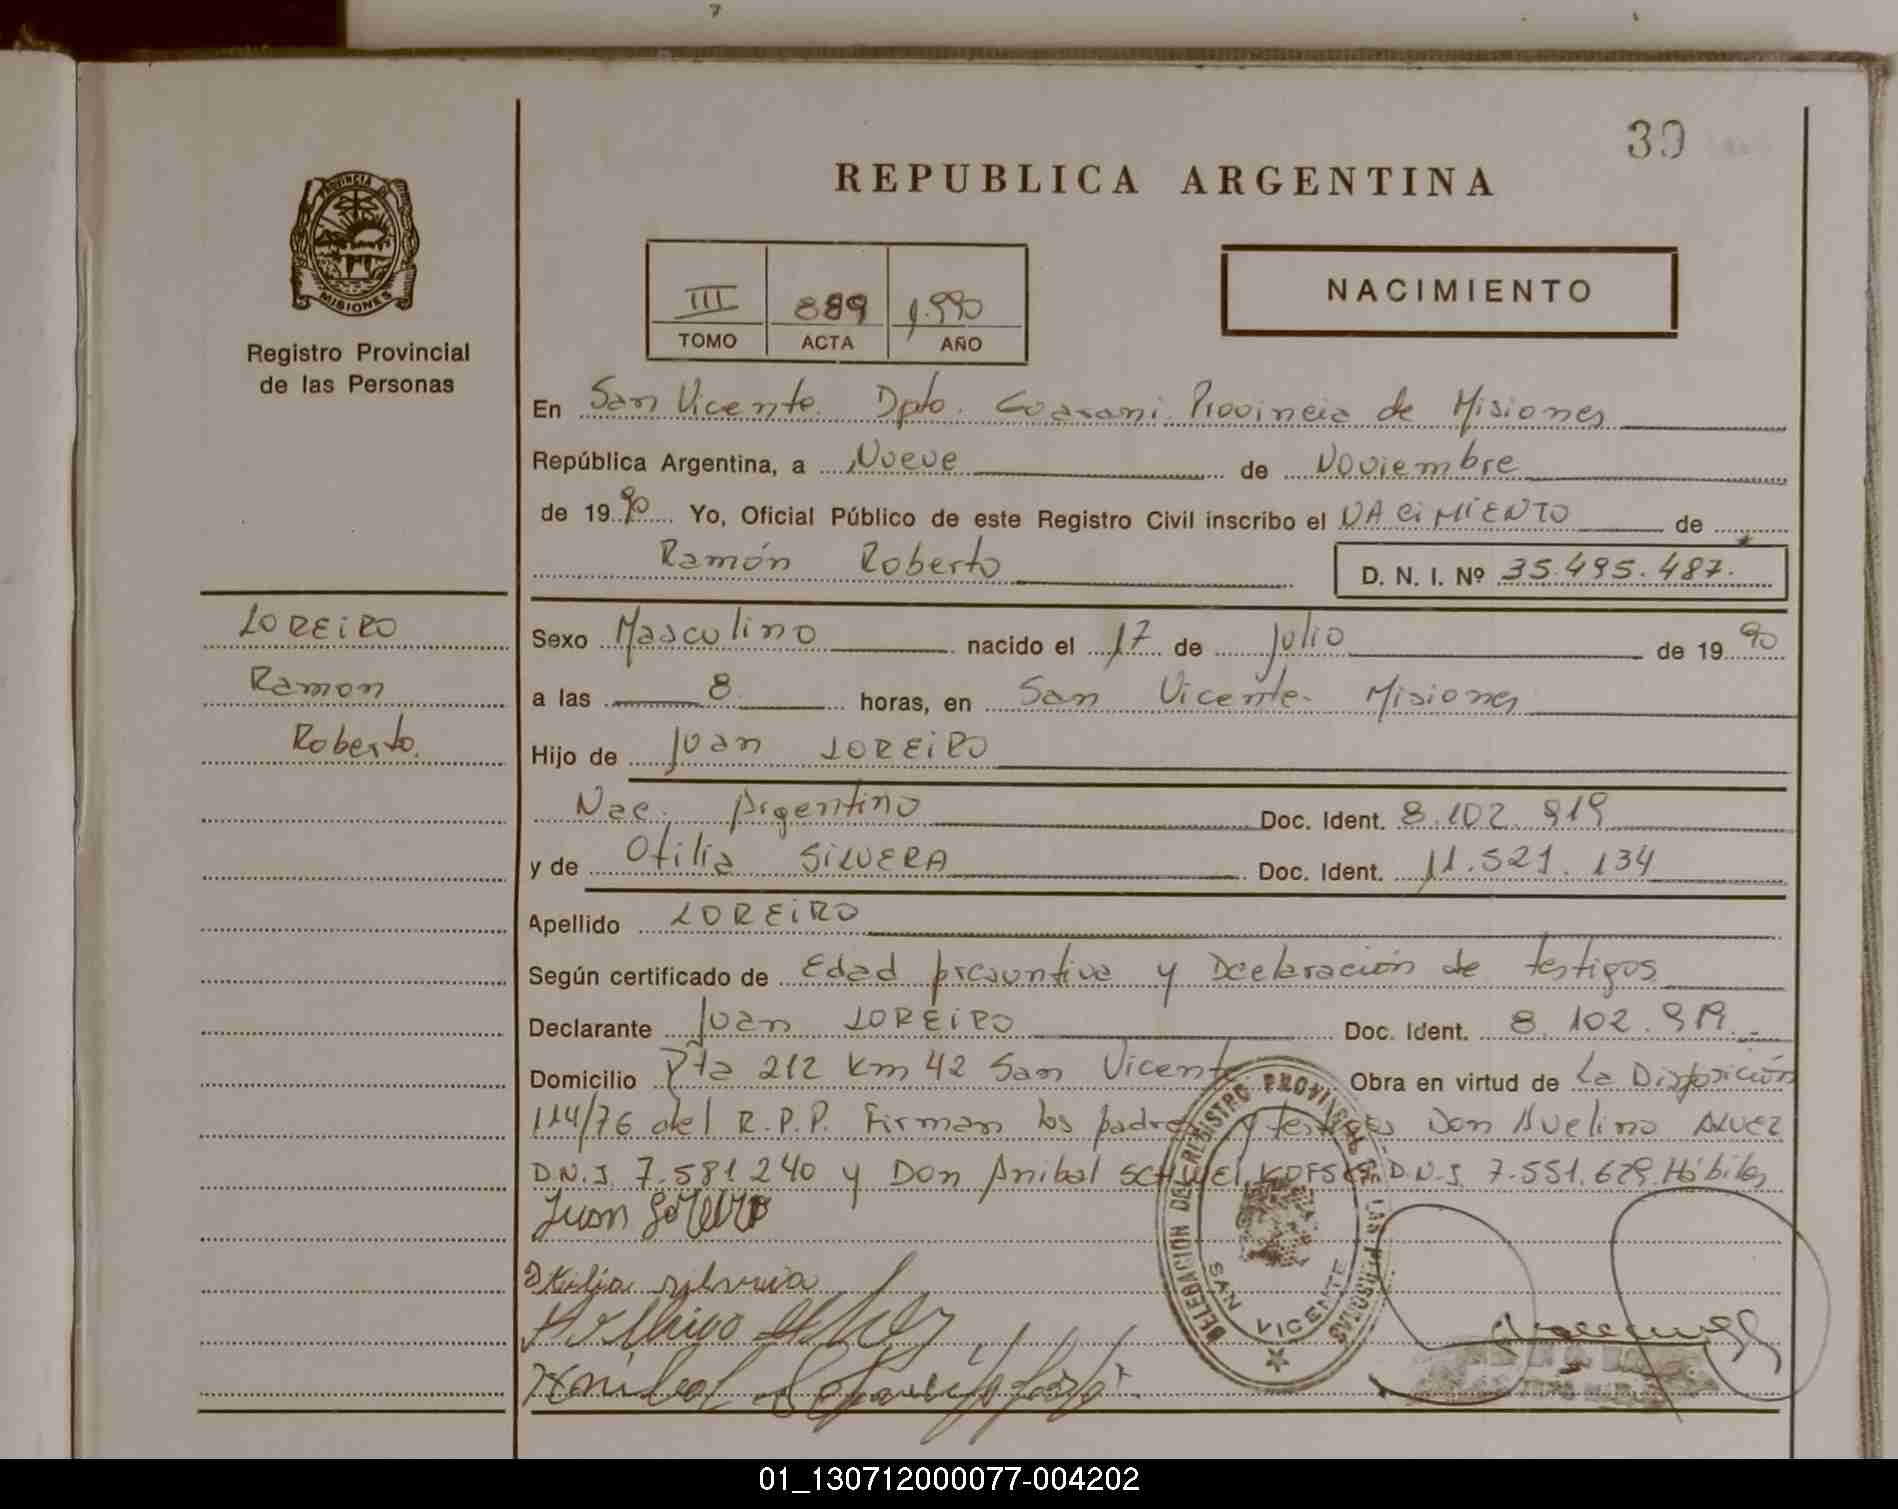 30
REPUBLICA ARGENTINA
PROVINCIA DE
MISIONES
Registro Provincial
de las Personas
III 889 1.990
TOMO ACTA AÑO
NACIMIENTO
En San Vicente Dpto. Guarani Provincia de Misiones
República Argentina, a Nueve de Noviembre
de 1990 Yo, Oficial Público de este Registro Civil inscribo el NACIMIENTO de
Ramón Roberto D. N. I. Nº 35.495.487.
LOREIRO
Ramon
Roberto.
Sexo Masculino nacido el 17 de Julio de 1990
a las 8 horas, en San Vicente - Misiones
Hijo de Juan LOREIRO
Nac. Argentino Doc. Ident. 8.102.919
y de Otilia SILVERA Doc. Ident. 11.521.134
Apellido LOREIRO
Según certificado de Edad presuntiva y Declaración de testigos
Declarante Juan LOREIRO Doc. Ident. 8.102.919.-
Domicilio Rta 212 Km 42 San Vicente Obra en virtud de La Disposición
114/76 del R.P.P. Firman los padres y testigos Don Avelino ALVEZ
D.N.I. 7.581.240 y Don Anibal D.N.I. 7.551.629 Hábiles
Juan
DELEGACION DEL REGISTRO PROVINCIAL DE LAS PERSONAS
SAN VICENTE
01_130712000077-004202